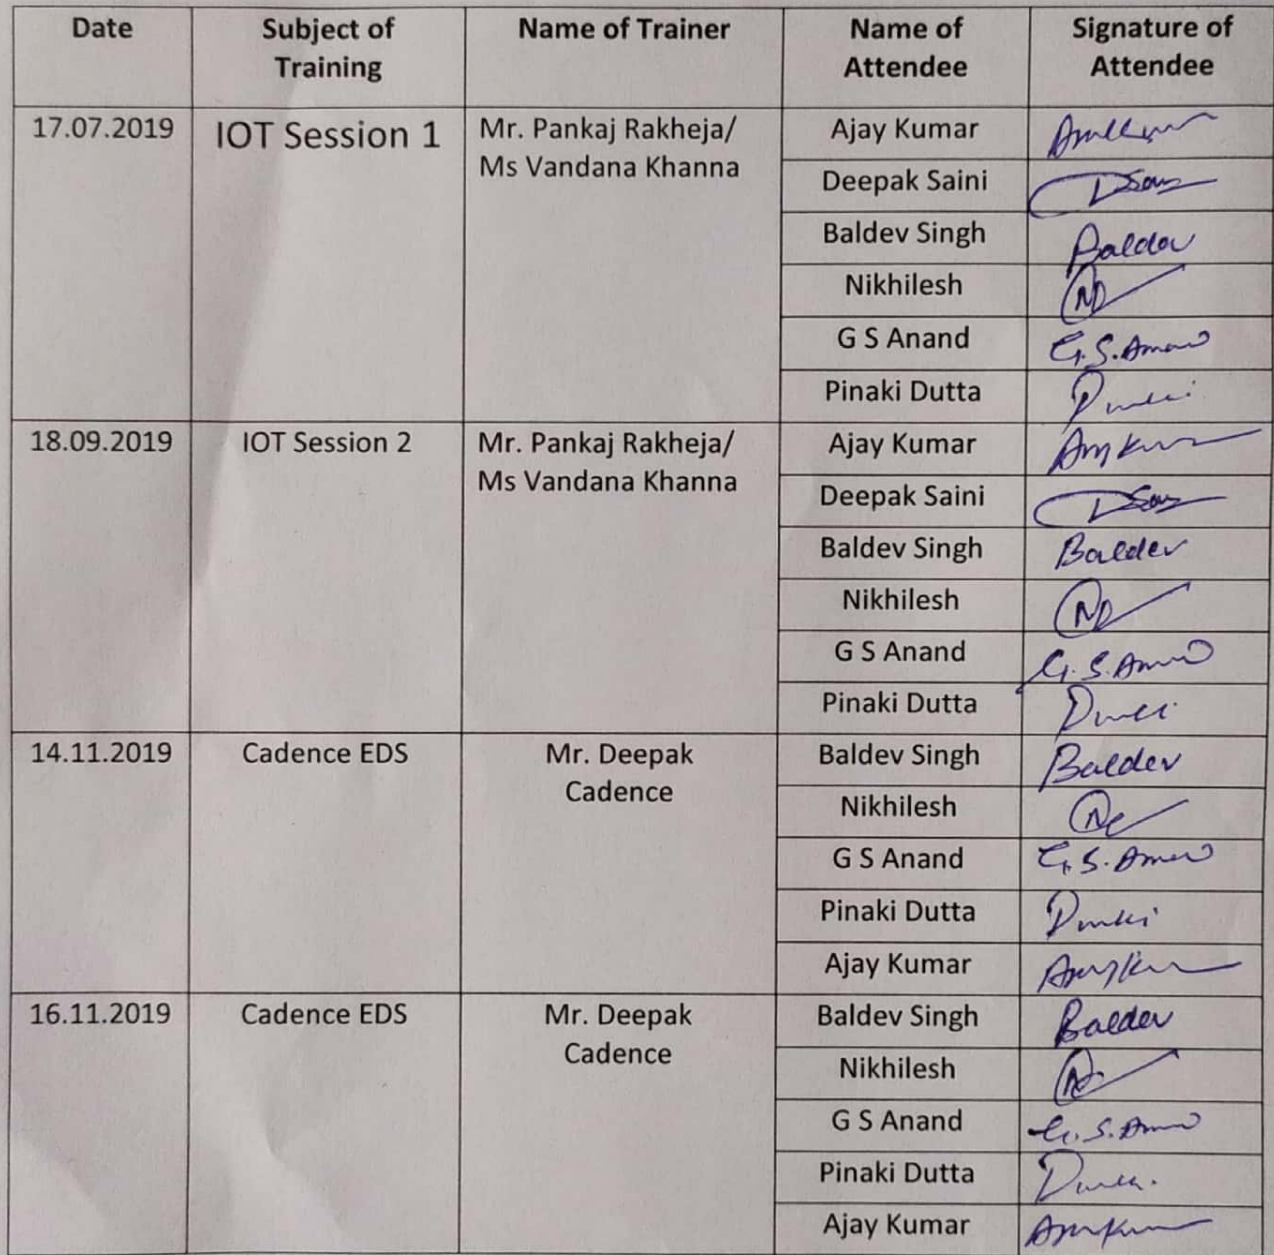 Date Subject of Name of Trainer Name of Signature of
Training Attendee Attendee
17.07.2019 IOT Session 1 Mr. Pankaj Rakheja/ Ajay Kumar
Ms Vandana Khanna Deepak Saini
Baldev Singh Baldev
Nikhilesh
G S Anand G.S.Anand
Pinaki Dutta
18.09.2019 IOT Session 2 Mr. Pankaj Rakheja/ Ajay Kumar
Ms Vandana Khanna Deepak Saini
Baldev Singh Baldev
Nikhilesh
G S Anand G.S.Anand
Pinaki Dutta
14.11.2019 Cadence EDS Mr. Deepak Baldev Singh Baldev
Cadence Nikhilesh
G S Anand G.S.Anand
Pinaki Dutta
Ajay Kumar
16.11.2019 Cadence EDS Mr. Deepak Baldev Singh Baldev
Cadence Nikhilesh
G S Anand G.S.Anand
Pinaki Dutta
Ajay Kumar